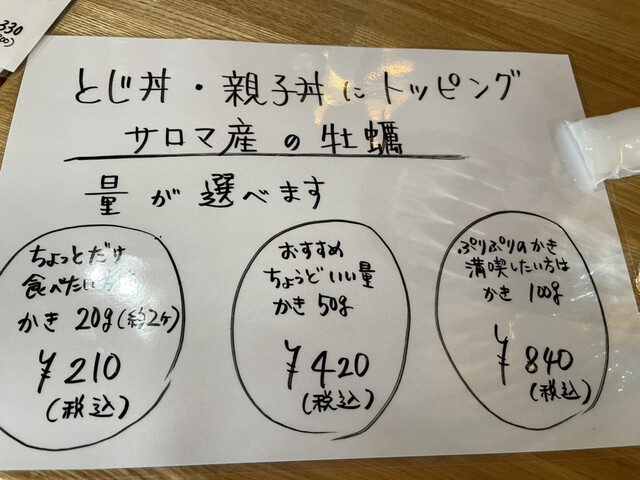 330
とじ丼・親子丼にトッピング
サロマ産の牡蠣
量が選べます
ちょっとだけ
食べたい
かき 20g(約2ケ)
¥210
(税込)
おすすめ
ちょうどいい量
かき 50g
¥420
(税込)
ぷりぷりのかき
満喫したい方は
かき 100g
¥840
(税込)